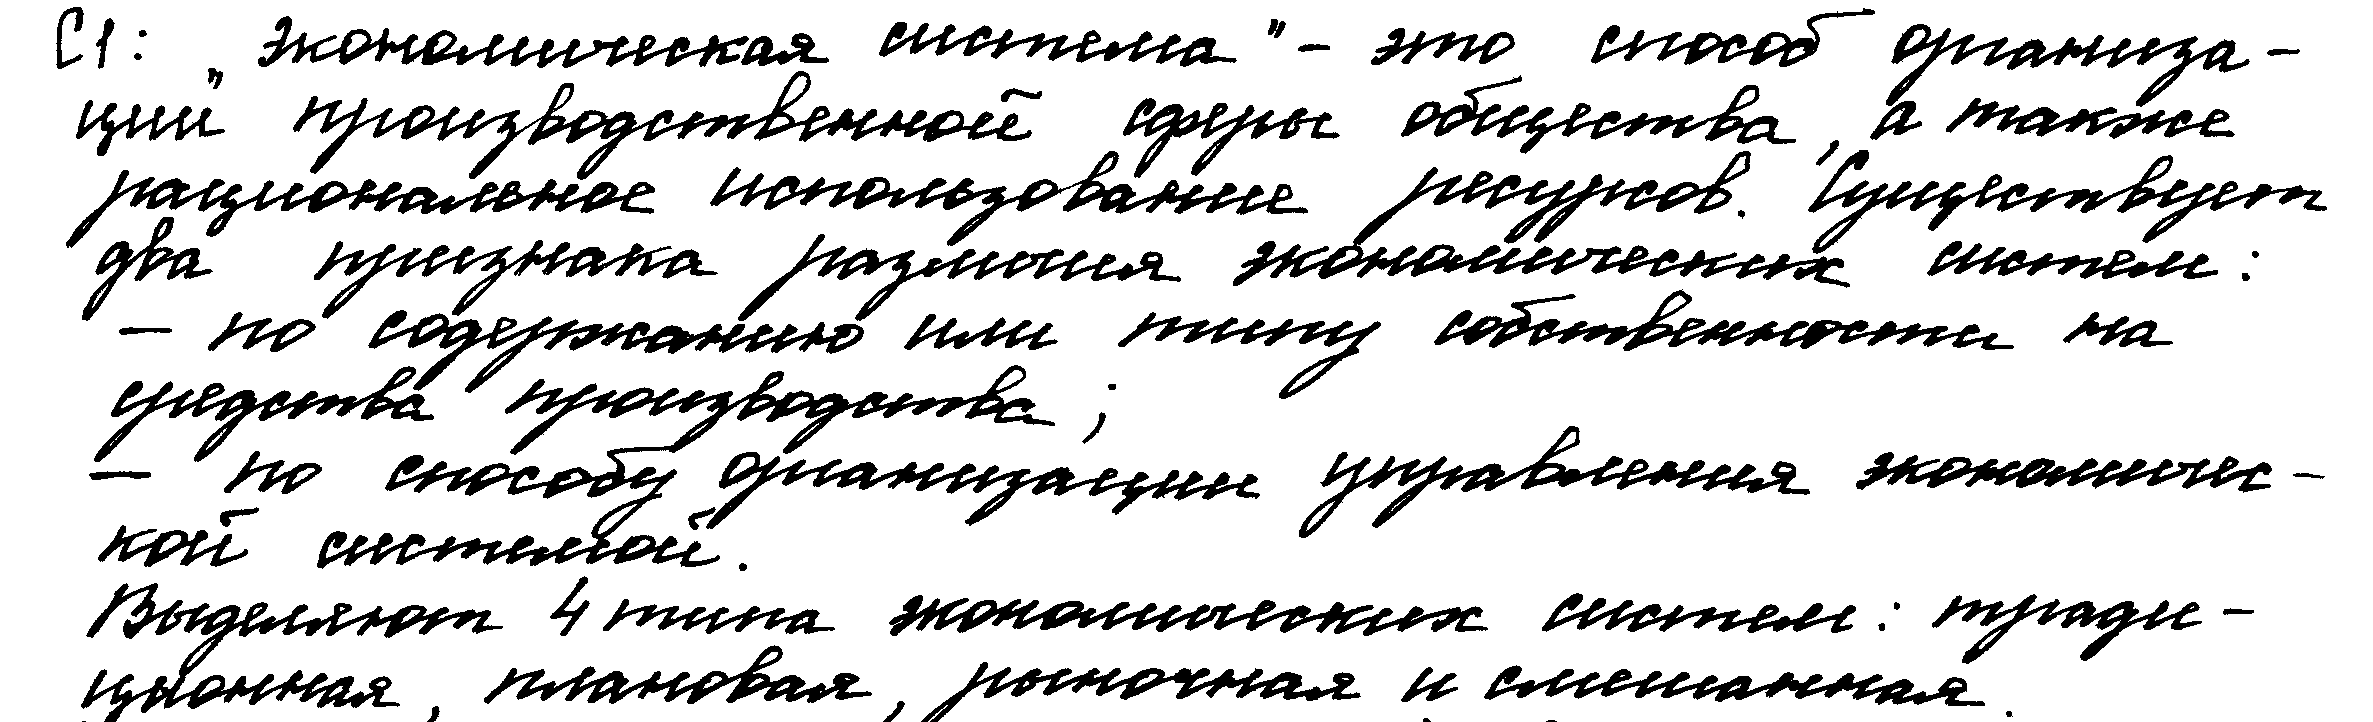 С1: „экономическая система" – это способ организа-
ции производственной сферы общества, а также
рациональное использование ресурсов. Существует
два признака различия экономических систем:
– по содержанию или типу собственности на
средства производства;
– по способу организации управления экономичес-
кой системой.
Выделяют 4 типа экономических систем: тради-
ционная, плановая, рыночная и смешанная.